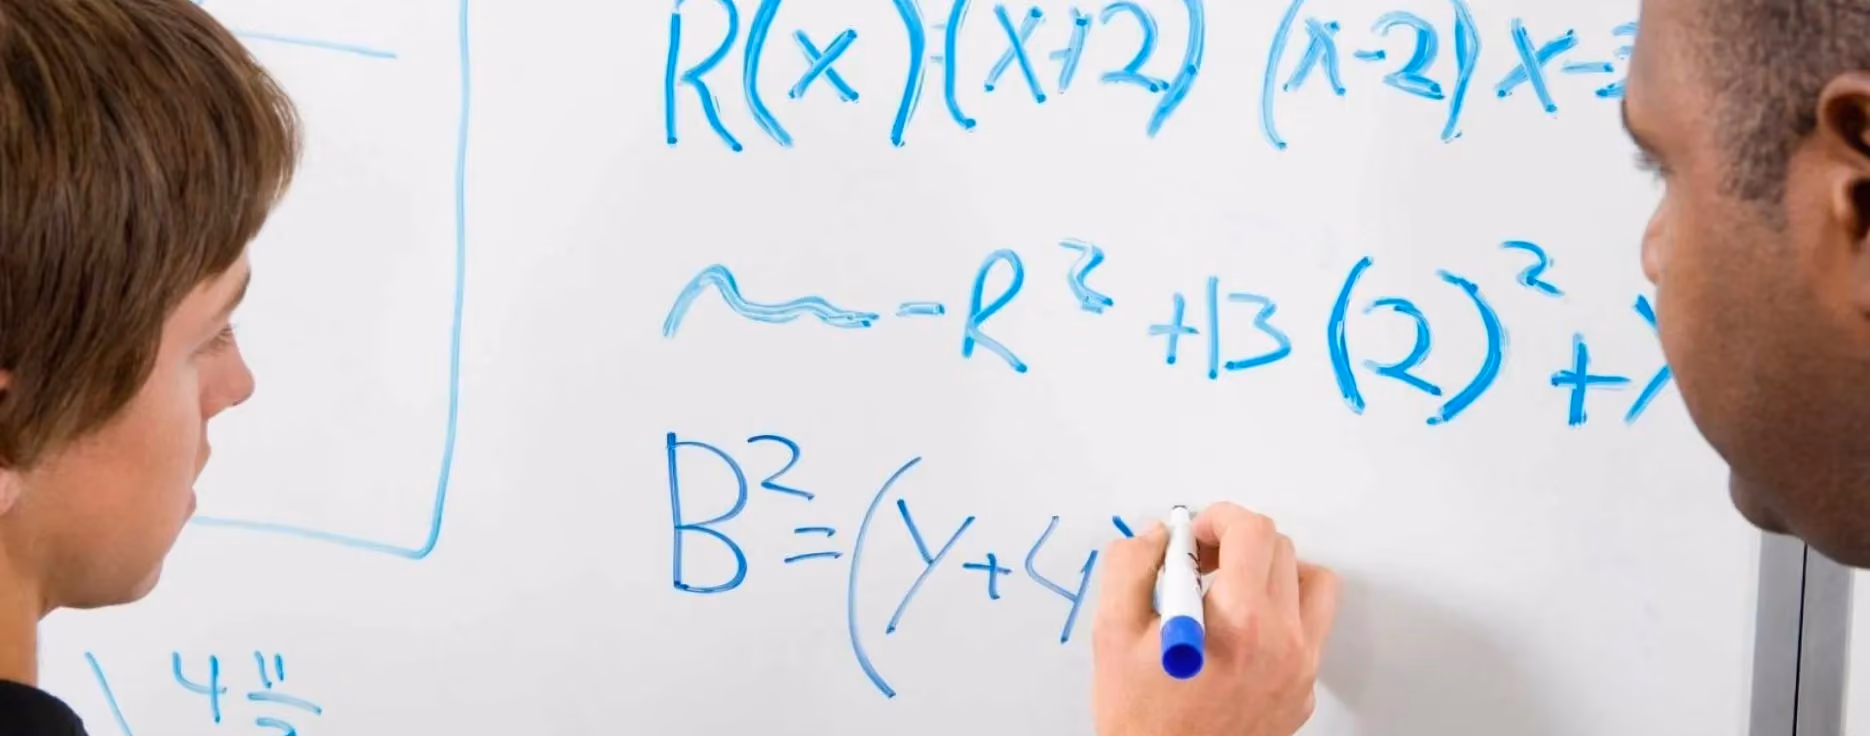 R(x)=(x+2) (x-2)x-
-R² +13(2)² +
B²=(Y+4)
4 11/2